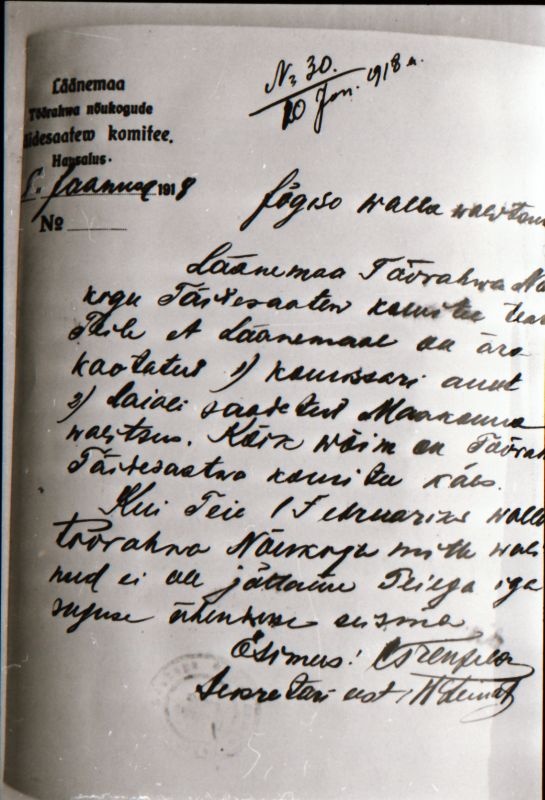 № 30.
10 Jan. 1918 a.
Läänemaa
Töörahwa nõukogude
idesaatew komitee.
Hapsalus.
Jaanuar 1918
№
Jõgiso walla walitsus
Läänemaa Töörahwa Nõ
kogu Täidesaatew komitee tea
Teile et Läänemaal on ära
kaotatud 1) komissari amet
2) laiali saadetud Maakonna
walitsus. Kõik wõim on Töörah
Täidesaatwa komitee käes.
Kui Teie 1 Februariks walla
töörahwa Nõukogu mitte wali
nud ei ole jättame Teiega iga
suguse ühenduse seisma
Esimees:
Sekretäri eest: